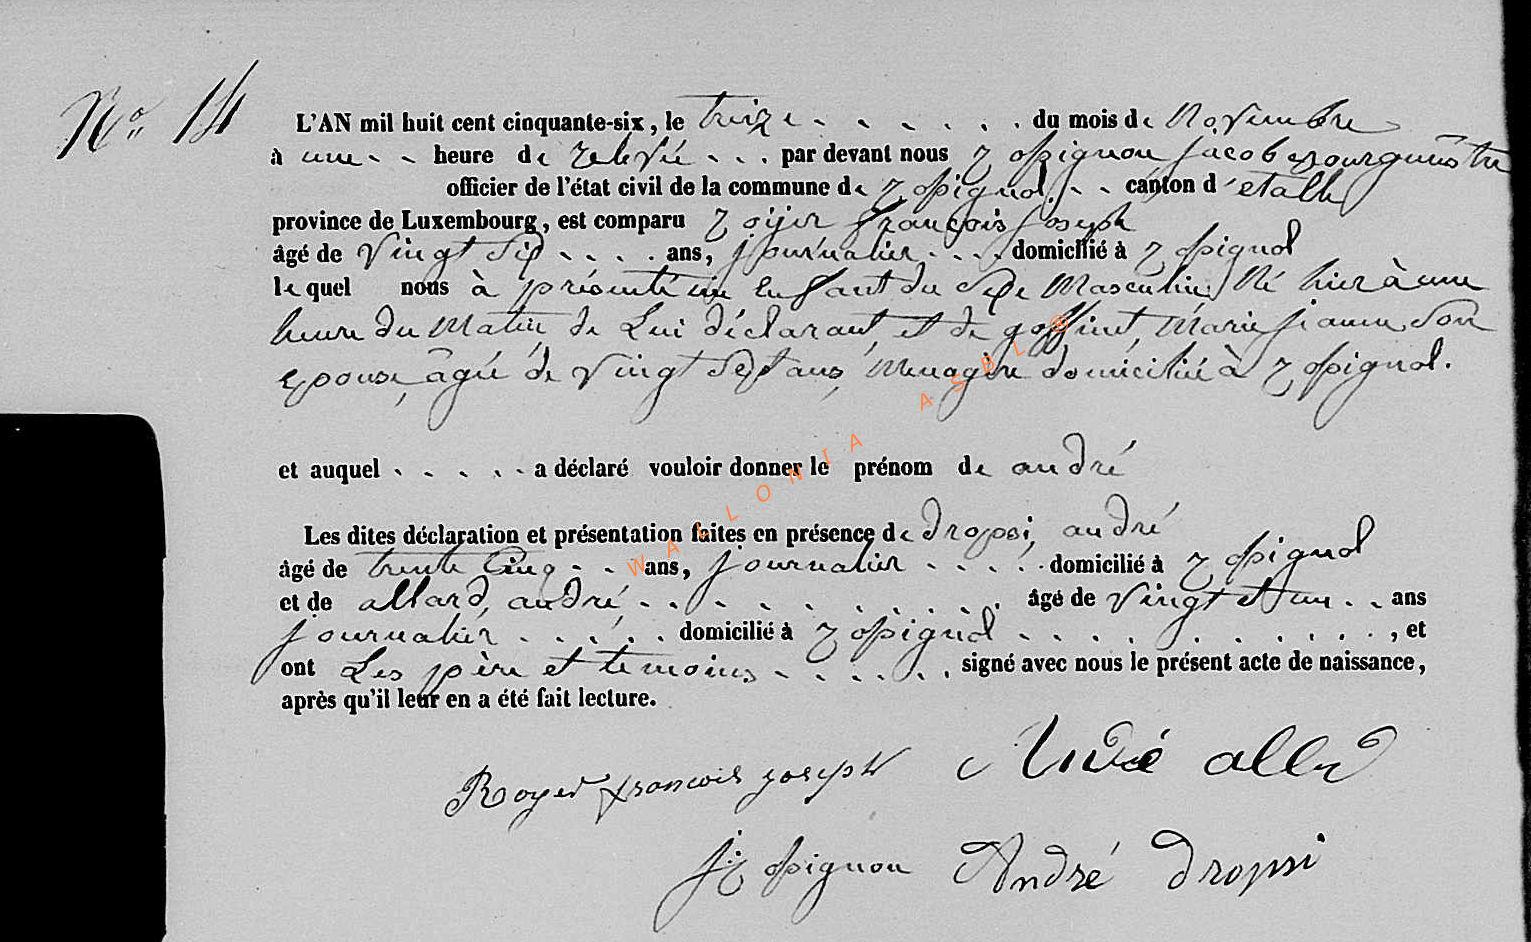 No 14
L'AN mil huit cent cinquante-six, le treize du mois de Novembre
à une heure de relevée par devant nous rossignon jacob bourguemestre
officier de l'état civil de la commune de rossignol canton d'etalle
province de Luxembourg, est comparu royer françois joseph
âgé de vingt six ans, journalier domicilié à rossignol
lequel nous à présenté un Enfant du Sexe Masculin, Né hier à une
heure du Matin de Lui déclarant, et de goffinet, Marie jeanne Son
epouse, agée de vingt Sept ans, Menagère domiciliée à rossignol.
et auquel a déclaré vouloir donner le prénom de andré
Les dites déclaration et présentation faites en présence de dropsi, andré
âgé de trente Cinq ans, journalier domicilié à rossignol
et de allard, andré, âgé de vingt et un ans
journalier domicilié à rossignol, et
ont Les père et temoins signé avec nous le présent acte de naissance,
après qu'il leur en a été fait lecture.
Royer françois joseph
J: rossignon André dropsi
WALLONIA ASBL ©